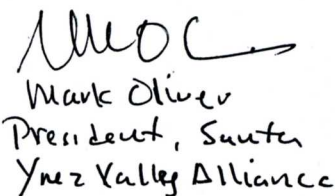 Mark Oliver
President, Santa
Ynez Valley Alliance